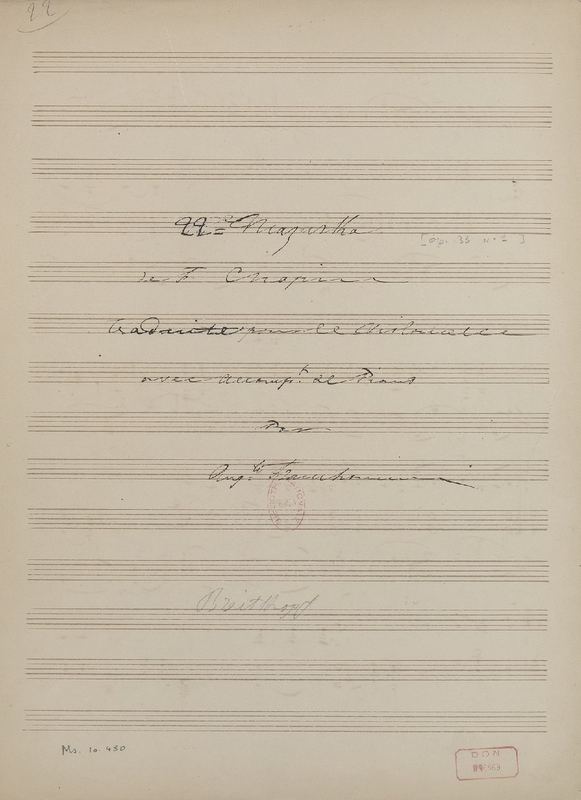 22
22e Mazurka
[op. 33 n° 1]
de F. Chopin
traduite pour le Violoncelle
avec accompt. de Piano
Par
Augte Franchomme
Breitkopf
Ms. 10.430
DON